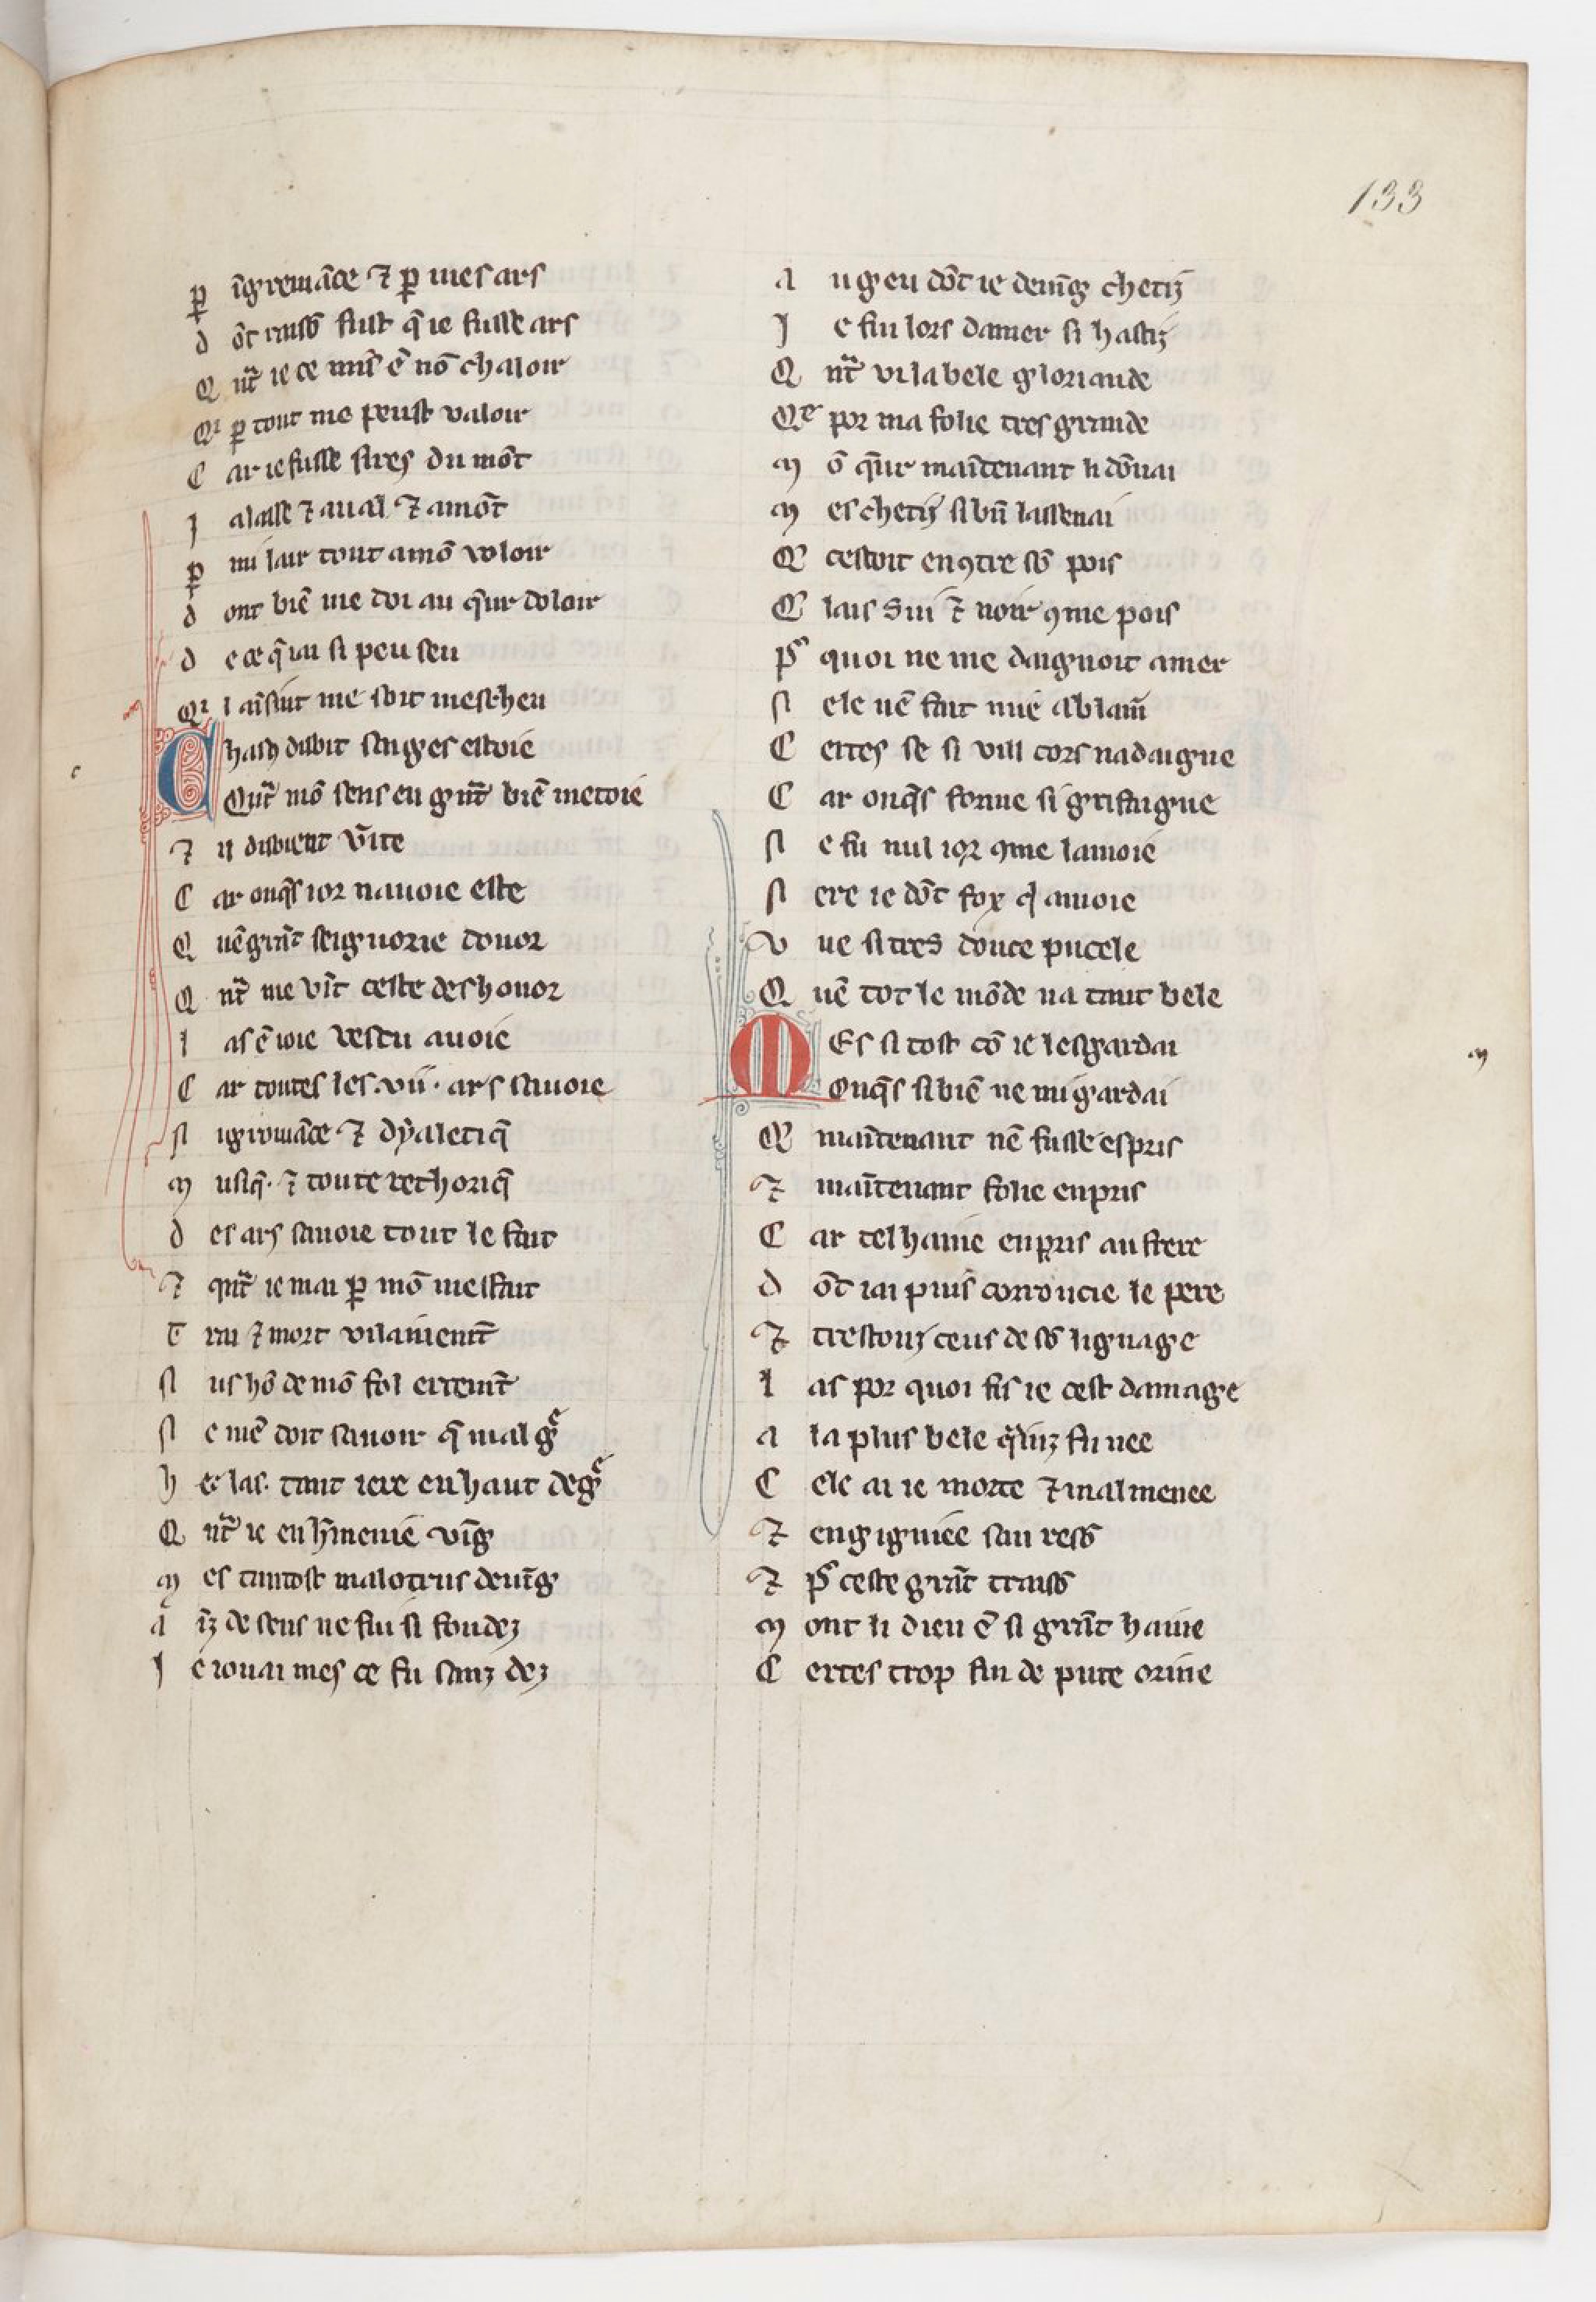 133
ꝑ īgremāce ⁊ ꝑ mes ars
d ōt raisō fust q̄ ie fusse ars
Q nt̃ ie ce mis ē nō chaloir
Qi ꝑ tout me peust valoir
C ar ie fusse sires du mōt
J alasse ⁊ aual ⁊ amōt
ꝑ mi lair tout a mō voloir
d ont biē me doi au q̄ur doloir
d e ce q̄ iai si peu seu
Qi l ainsint me soit mescheu
C hascū disoit sages estoie
Qnt̃ mō sens en gnt̃ biē metoie
⁊ il disoient v̄ite
C ar onq̄s ior nauoie este
Q uē grāt seignorie donor
Q nt̃ me vīt ceste deshonor
l as ē ioie vestu auoie
C ar toutes les .vii. ars sauoie
n igromāce ⁊ dyaletiq̄
m usiq̄. ⁊ toute rethoriq̄
d es ars sauoie tout le fait
⁊ qnt̃ ie mai ꝑ mō mesfait
T rai ⁊ mort vilainemt̃
n us hō de mō fol erremt̃
n e mē doit sauoir q̄ mal gᵉ
h e las. tant iere en haut degᵉ
Q nt̃ ie en h̄menie vīg
m es tantost malotrus deuīg
a īz de sens ne fui si fondez
J e iouai mes ce fu sanz dez
a u geu dōt ie deuīg chetiz
J e fui lors damer si hastiz
Q nt̃ vi la bele gloriande
Qe por ma folie tres grande
m ō q̄ur maītenant li dōnai
m es chetiz si bn̄ lassenai
Q cestoit en ꝯtre sō pois
Q lais sui ⁊ noir ꝯme pois
p̄ quoi ne me daignoit amer
n ele nē fait mie a blam̄
C ertes se si vill cors na daigne
C ar onq̄s forme si grifaigne
n e fu nul ior ꝯme lamoie
n ere ie dōt fox q̄ amoie
v ne si tres douce pucele
Q uē tot le mōde na tant bele
M Es si tost cō ie lesgardai
Onq̄s si biē ne mi gardai
Q maītenant nē fusse espris
⁊ maītenant folie enpris
C ar tel haine enpris au frere
d ōt iai puis corroucie le pere
⁊ trestouz ceus de sō lignage
l as por quoi fis ie cest damage
a la plus bele q̄ ainz fu nee
C ele ai ie morte ⁊ mal menee
⁊ engigniee san resō
⁊ p̄ ceste grāt traisō
m ont li dieu ē si grāt haine
C ertes trop fui de pute orine
c
m